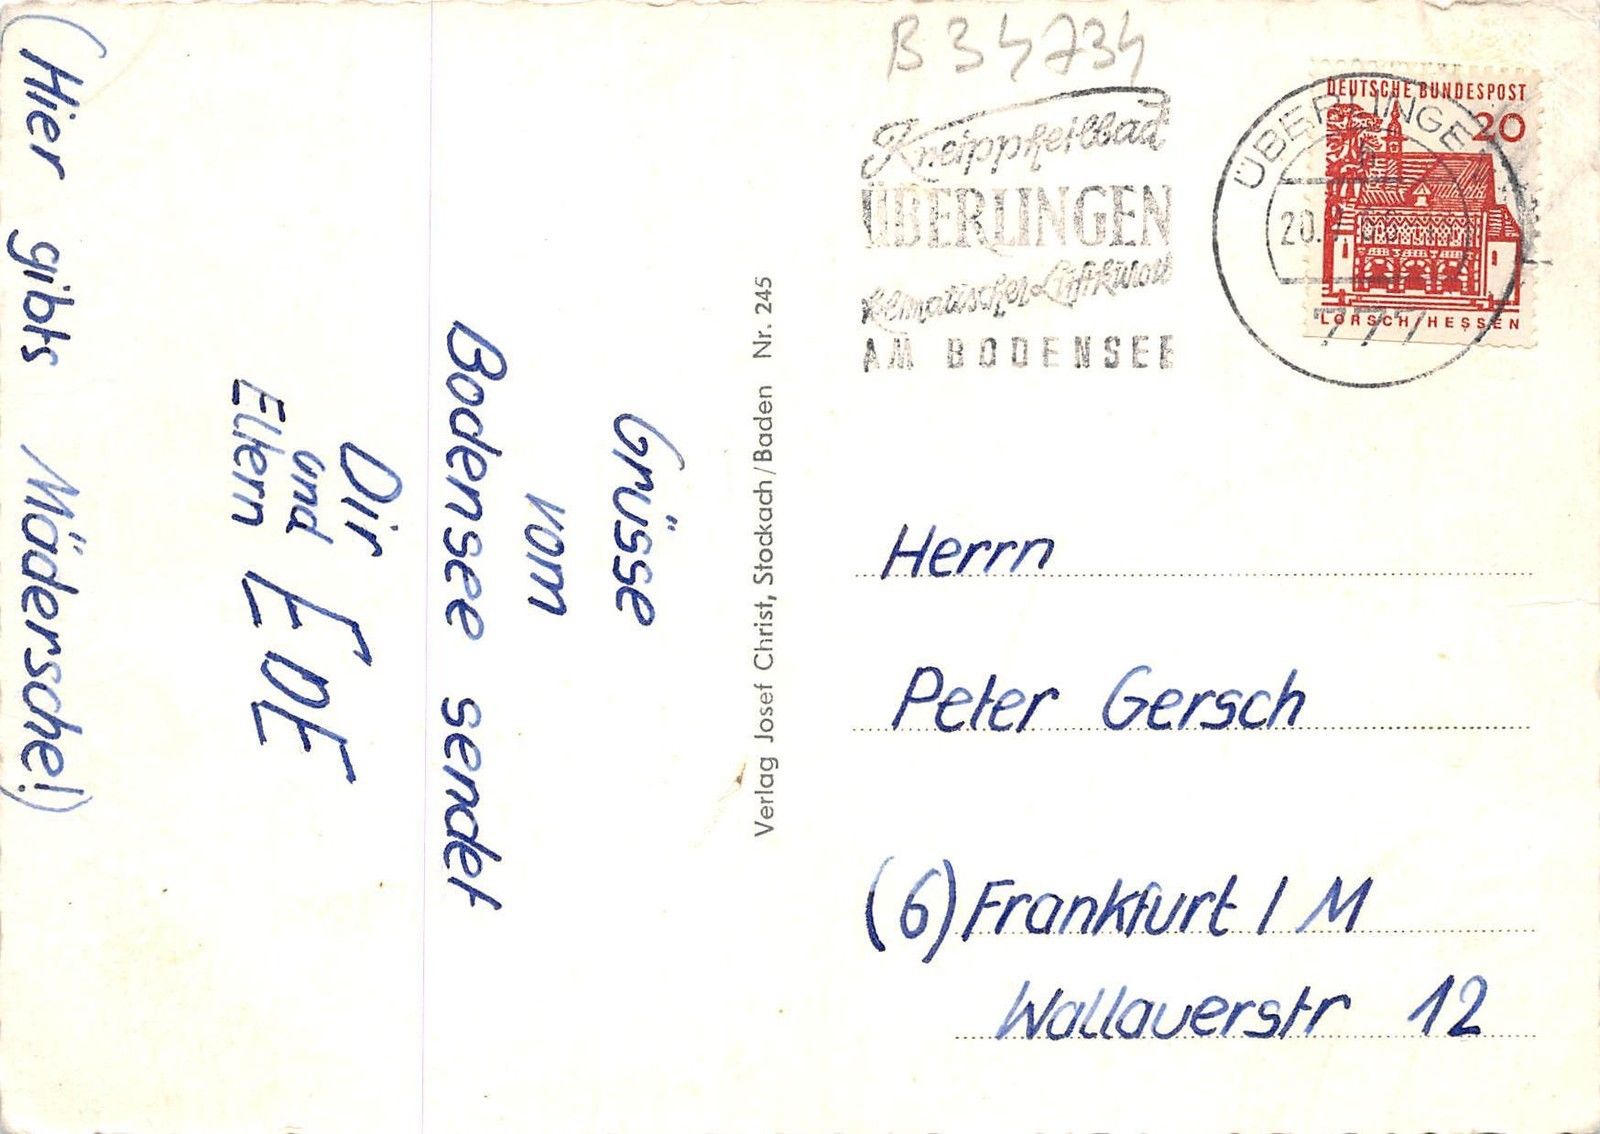 Grüsse
vom
Bodensee sendet
Dir
und
Eltern
EDE
(Hier gibts Mädersche!)
Verlag Josef Christ, Stockach/Baden Nr. 245
B 34734
Kneippheilbad
ÜBERLINGEN
klimatischer Luftkurort
AM BODENSEE
ÜBERLINGEN
20.
777
DEUTSCHE BUNDESPOST
20
LORSCH/HESSEN
Herrn
Peter Gersch
(6) Frankfurt / M
Wallauerstr 12